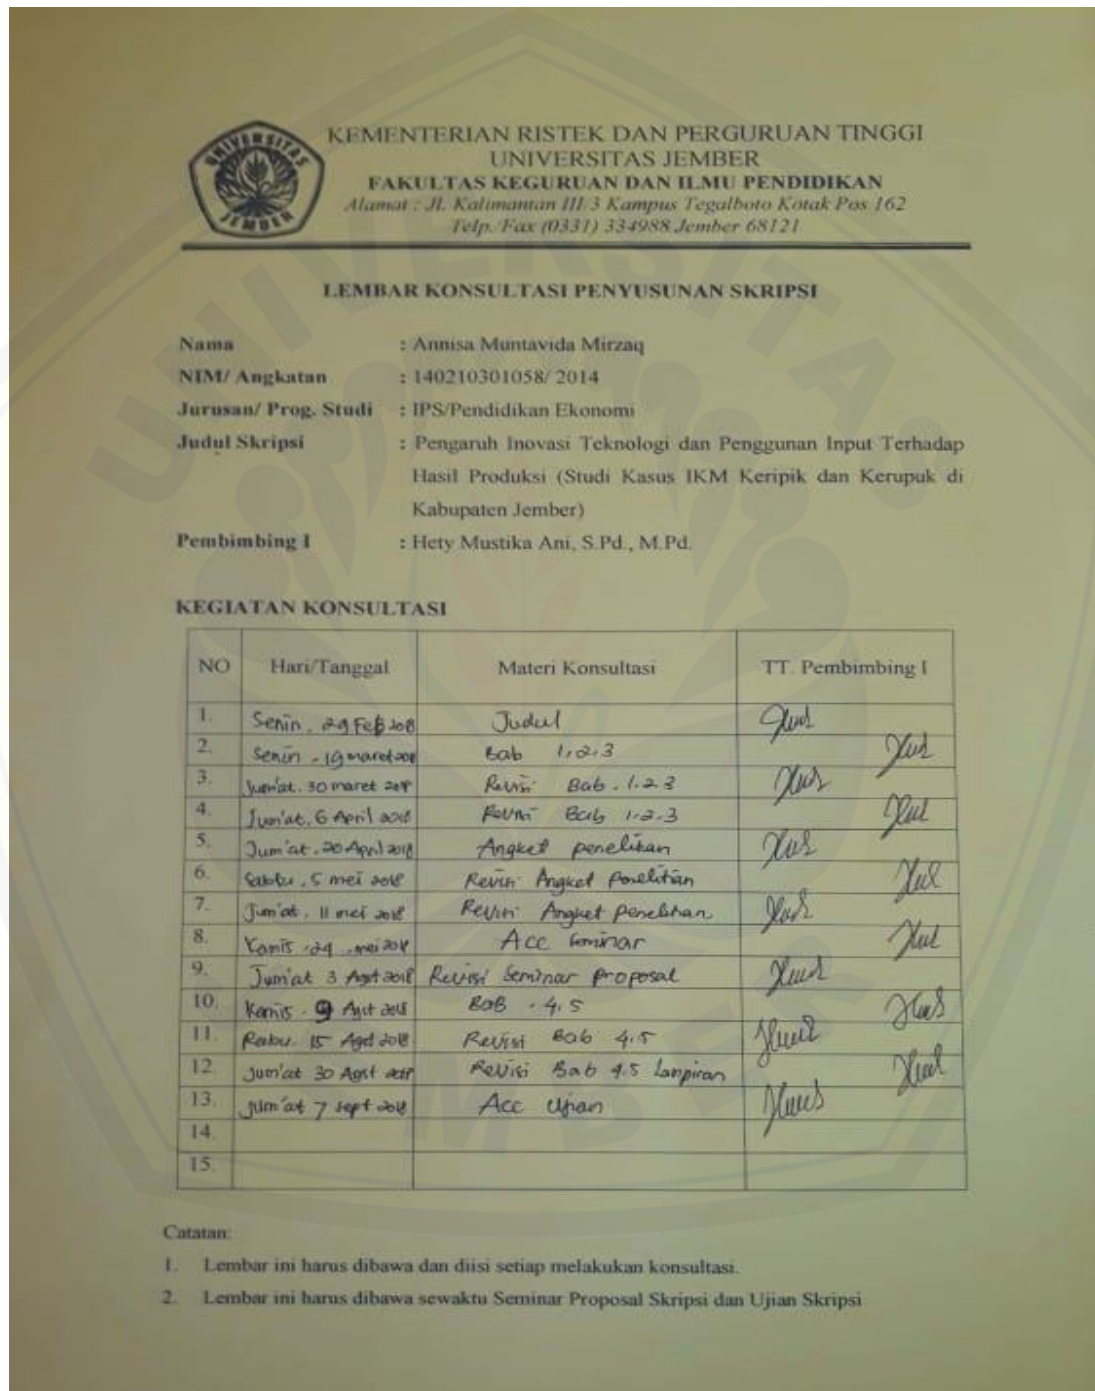 UNIVERSITAS JEMBER
KEMENTERIAN RISTEK DAN PERGURUAN TINGGI
UNIVERSITAS JEMBER
FAKULTAS KEGURUAN DAN ILMU PENDIDIKAN
Alamat : Jl. Kalimantan III/3 Kampus Tegalboto Kotak Pos 162
Telp./Fax (0331) 334988 Jember 68121
LEMBAR KONSULTASI PENYUSUNAN SKRIPSI
Nama : Annisa Muntavida Mirzaq
NIM/ Angkatan : 140210301058/ 2014
Jurusan/ Prog. Studi : IPS/Pendidikan Ekonomi
Judul Skripsi : Pengaruh Inovasi Teknologi dan Penggunan Input Terhadap
Hasil Produksi (Studi Kasus IKM Keripik dan Kerupuk di
Kabupaten Jember)
Pembimbing I : Hety Mustika Ani, S.Pd., M.Pd.
KEGIATAN KONSULTASI
NO Hari/Tanggal Materi Konsultasi TT. Pembimbing I
1. Senin, Feb 2018 Judul
2. Senin - 19 maret 2018 Bab 1,2.3
3. Jum'at. 30 maret 2018 Revisi Bab. 1.2.3
4. Jum'at, 6 April 2018 Revisi Bab 1.2.3
5. Jum'at, 20 April 2018 Angket penelitian
6. Sabtu, 5 mei 2018 Revisi Angket Penelitian
7. Jum'at, 11 mei 2018 Revisi Angket Penelitian
8. Kamis, 24 mei 2018 Acc Seminar
9. Jum'at 3 Agst 2018 Revisi Seminar proposal
10. Kamis - 9 Agst 2018 BaB . 4.5
11. Rabu. 15 Agst 2018 Revisi Bab 4.5
12. Jum'at 30 Agst 2018 Revisi Bab 4.5 Lampiran
13. Jum'at 7 sept 2018 Acc Ujian
14.
15.
Catatan:
1. Lembar ini harus dibawa dan diisi setiap melakukan konsultasi.
2. Lembar ini harus dibawa sewaktu Seminar Proposal Skripsi dan Ujian Skripsi